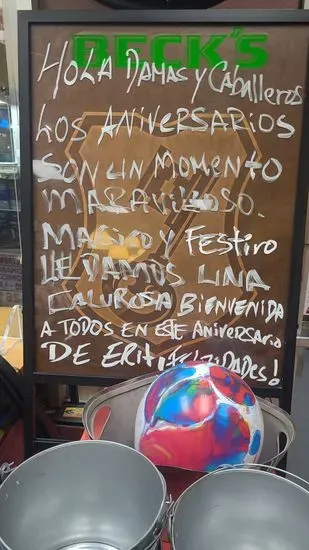 BECK'S
HOLA DAMAS Y CABALLEROS
LOS ANIVERSARIOS
SON UN MOMENTO
MARAVILLOSO.
MAGICO Y FESTIVO
LE DAMOS UNA
CALUROSA BIENVENIDA
A TODOS EN ESTE ANIVERSARIO
DE FELIZIDADES!